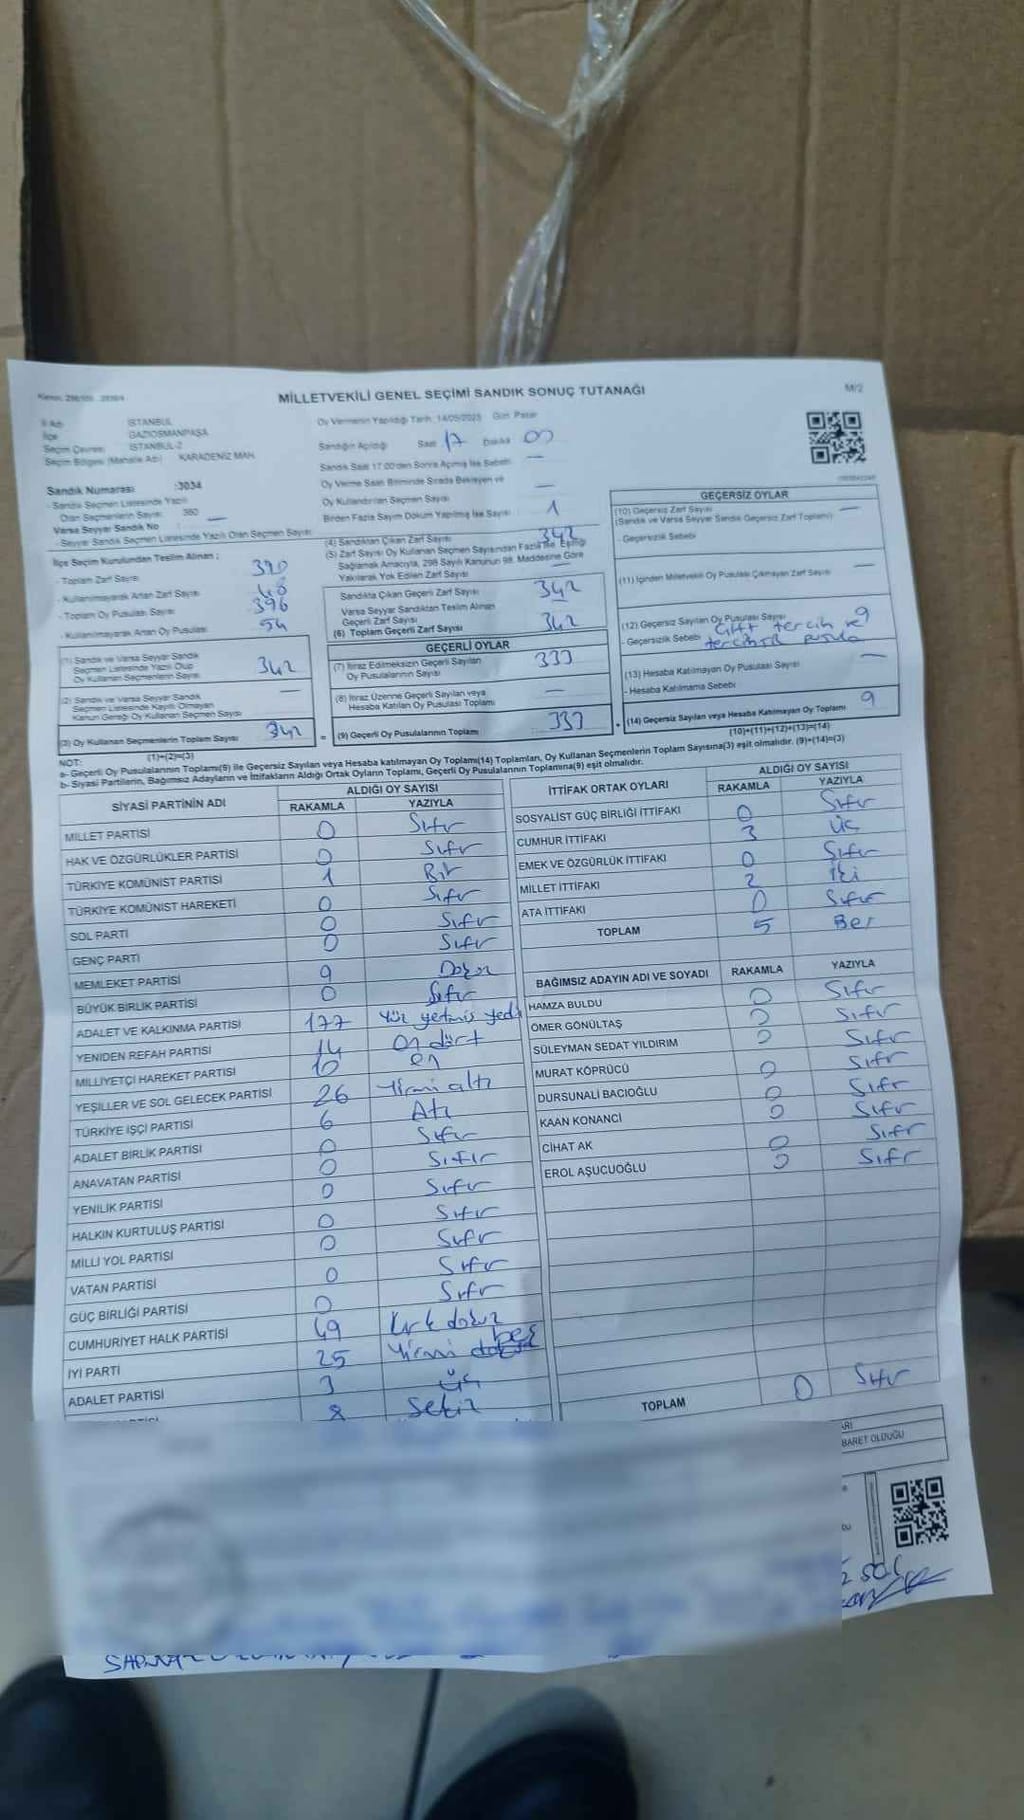 MİLLETVEKİLİ GENEL SEÇİMİ SANDIK SONUÇ TUTANAĞI
M/2
İl Adı : İSTANBUL
İlçe : GAZİOSMANPAŞA
Seçim Çevresi : İSTANBUL-2
Seçim Bölgesi (Mahalle Adı) : KARADENİZ MAH.
Sandık Numarası :3034
- Sandık Seçmen Listesinde Yazılı
Olan Seçmenlerin Sayısı : 380
Varsa Seyyar Sandık No : —
- Seyyar Sandık Seçmen Listesinde Yazılı Olan Seçmen Sayısı:
Oy Vermenin Yapıldığı Tarih: 14/05/2023 Gün: Pazar
Sandığın Açıldığı Saat 17 Dakika 00
Sandık Saat 17.00'den Sonra Açılmış İse Sebebi —
Oy Verme Saati Bitiminde Sırada Bekleyen ve
Oy Kullandırılan Seçmen Sayısı —
Birden Fazla Sayım Döküm Yapılmış İse Sayısı 1
İlçe Seçim Kurulundan Teslim Alınan ;
- Toplam Zarf Sayısı 390
- Kullanılmayarak Artan Zarf Sayısı 48
- Toplam Oy Pusulası Sayısı 396
- Kullanılmayarak Artan Oy Pusulası 54
(1) Sandık ve Varsa Seyyar Sandık
Seçmen Listesinde Yazılı Olup
Oy Kullanan Seçmen Sayısı 342
(2) Sandık ve Varsa Seyyar Sandık
Seçmen Listesinde Kayıtlı Olmayan
Kanun Gereği Oy Kullanan Seçmen Sayısı —
(3) Oy Kullanan Seçmenlerin Toplam Sayısı 342
(1)+(2)=(3)
(4) Sandıktan Çıkan Zarf Sayısı 342
(5) Zarf Sayısı Oy Kullanan Seçmen Sayısından Fazla İse, Eşitliği
Sağlamak Amacıyla, 298 Sayılı Kanunun 98. Maddesine Göre
Yakılarak Yok Edilen Zarf Sayısı —
Sandıkta Çıkan Geçerli Zarf Sayısı 342
Varsa Seyyar Sandıktan Teslim Alınan
Geçerli Zarf Sayısı —
(6) Toplam Geçerli Zarf Sayısı 342
GEÇERLİ OYLAR
(7) İtiraz Edilmeksizin Geçerli Sayılan
Oy Pusulalarının Sayısı 333
(8) İtiraz Üzerine Geçerli Sayılan veya
Hesaba Katılan Oy Pusulası Toplamı —
= (9) Geçerli Oy Pusulalarının Toplamı 333
GEÇERSİZ OYLAR
(10) Geçersiz Zarf Sayısı —
(Sandık ve Varsa Seyyar Sandık Geçersiz Zarf Toplamı)
- Geçersizlik Sebebi
(11) İçinden Milletvekili Oy Pusulası Çıkmayan Zarf Sayısı —
(12) Geçersiz Sayılan Oy Pusulası Sayısı 9
- Geçersizlik Sebebi Çift tercih ve
tercihsiz pusula
(13) Hesaba Katılmayan Oy Pusulası Sayısı —
- Hesaba Katılmama Sebebi
+ (14) Geçersiz Sayılan veya Hesaba Katılmayan Oy Toplamı 9
(10)+(11)+(12)+(13)=(14)
NOT:
a- Geçerli Oy Pusulalarının Toplamı(9) ile Geçersiz Sayılan veya Hesaba katılmayan Oy Toplamı(14) Toplamları, Oy Kullanan Seçmenlerin Toplam Sayısına(3) eşit olmalıdır. (9)+(14)=(3)
b- Siyasi Partilerin, Bağımsız Adayların ve İttifakların Aldığı Ortak Oyların Toplamı, Geçerli Oy Pusulalarının Toplamına(9) eşit olmalıdır.
SİYASİ PARTİNİN ADI ALDIĞI OY SAYISI
RAKAMLA YAZIYLA
MİLLET PARTİSİ 0 Sıfır
HAK VE ÖZGÜRLÜKLER PARTİSİ 0 Sıfır
TÜRKİYE KOMÜNİST PARTİSİ 1 Bir
TÜRKİYE KOMÜNİST HAREKETİ 0 Sıfır
SOL PARTİ 0 Sıfır
GENÇ PARTİ 0 Sıfır
MEMLEKET PARTİSİ 9 Dokuz
BÜYÜK BİRLİK PARTİSİ 0 Sıfır
ADALET VE KALKINMA PARTİSİ 177 Yüz yetmiş yedi
YENİDEN REFAH PARTİSİ 14 On dört
MİLLİYETÇİ HAREKET PARTİSİ 10 on
YEŞİLLER VE SOL GELECEK PARTİSİ 26 Yirmi altı
TÜRKİYE İŞÇİ PARTİSİ 6 Altı
ADALET BİRLİK PARTİSİ 0 Sıfır
ANAVATAN PARTİSİ 0 Sıfır
YENİLİK PARTİSİ 0 Sıfır
HALKIN KURTULUŞ PARTİSİ 0 Sıfır
MİLLİ YOL PARTİSİ 0 Sıfır
VATAN PARTİSİ 0 Sıfır
GÜÇ BİRLİĞİ PARTİSİ 0 Sıfır
CUMHURİYET HALK PARTİSİ 49 Kırk dokuz
İYİ PARTİ 25 Yirmi beş
ADALET PARTİSİ 3 Üç
8 Sekiz
İTTİFAK ORTAK OYLARI ALDIĞI OY SAYISI
RAKAMLA YAZIYLA
SOSYALİST GÜÇ BİRLİĞİ İTTİFAKI 0 Sıfır
CUMHUR İTTİFAKI 3 Üç
EMEK VE ÖZGÜRLÜK İTTİFAKI 0 Sıfır
MİLLET İTTİFAKI 2 İki
ATA İTTİFAKI 0 Sıfır
TOPLAM 5 Beş
BAĞIMSIZ ADAYIN ADI VE SOYADI RAKAMLA YAZIYLA
HAMZA BULDU 0 Sıfır
ÖMER GÖNÜLTAŞ 0 Sıfır
SÜLEYMAN SEDAT YILDIRIM 0 Sıfır
MURAT KÖPRÜCÜ 0 Sıfır
DURSUNALİ BACIOĞLU 0 Sıfır
KAAN KONANCI 0 Sıfır
CİHAT AK 0 Sıfır
EROL AŞUCUOĞLU 0 Sıfır
TOPLAM 0 Sıfır
BARET OLDUĞU